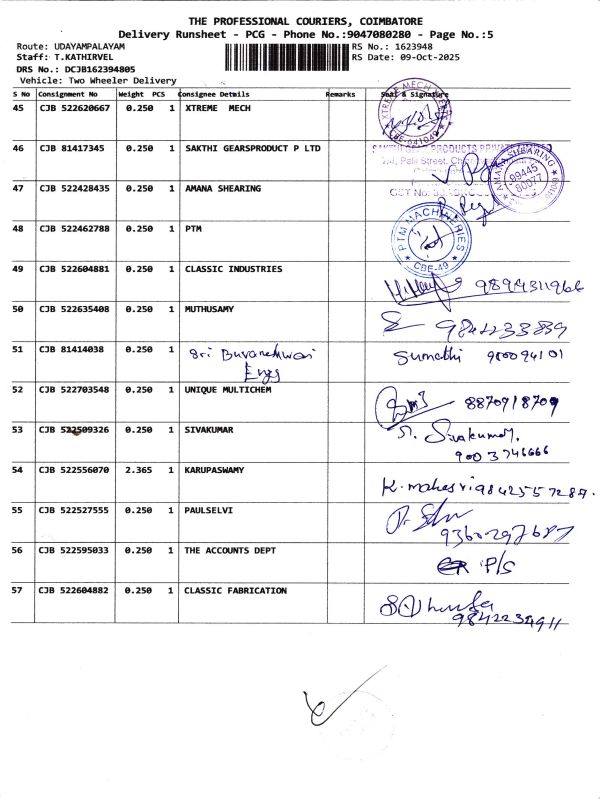 THE PROFESSIONAL COURIERS, COIMBATORE
Delivery Runsheet - PCG - Phone No.:9047080280 - Page No.:5
Route: UDAYAMPALAYAM RS No.: 1623948
Staff: T.KATHIRVEL RS Date: 09-Oct-2025
DRS No.: DCJB162394805
Vehicle: Two Wheeler Delivery
S No Consignment No Weight PCS Consignee Details Remarks Seal & Signature
45 CJB 522620667 0.250 1 XTREME MECH
XTREME MECH
CBE-641049
46 CJB 81417345 0.250 1 SAKTHI GEARSPRODUCT P LTD
PRODUCTS
Street,
47 CJB 522428435 0.250 1 AMANA SHEARING
AMANA SHEARING
99445
80077
GST No.
48 CJB 522462788 0.250 1 PTM
PTM MACHINERIES
CBE-49
49 CJB 522604881 0.250 1 CLASSIC INDUSTRIES
9894311966
50 CJB 522635408 0.250 1 MUTHUSAMY
9842233839
51 CJB 81414038 0.250 1 Sri Buvaneshwari Sumathi
Engg
52 CJB 522703548 0.250 1 UNIQUE MULTICHEM 8870918709
53 CJB 522509326 0.250 1 SIVAKUMAR Sivakumar.
9003746666
54 CJB 522556070 2.365 1 KARUPASWAMY
K. mahesri 9842557287.
55 CJB 522527555 0.250 1 PAULSELVI
9360297687
56 CJB 522595033 0.250 1 THE ACCOUNTS DEPT
P/S
57 CJB 522604882 0.250 1 CLASSIC FABRICATION
9842234911